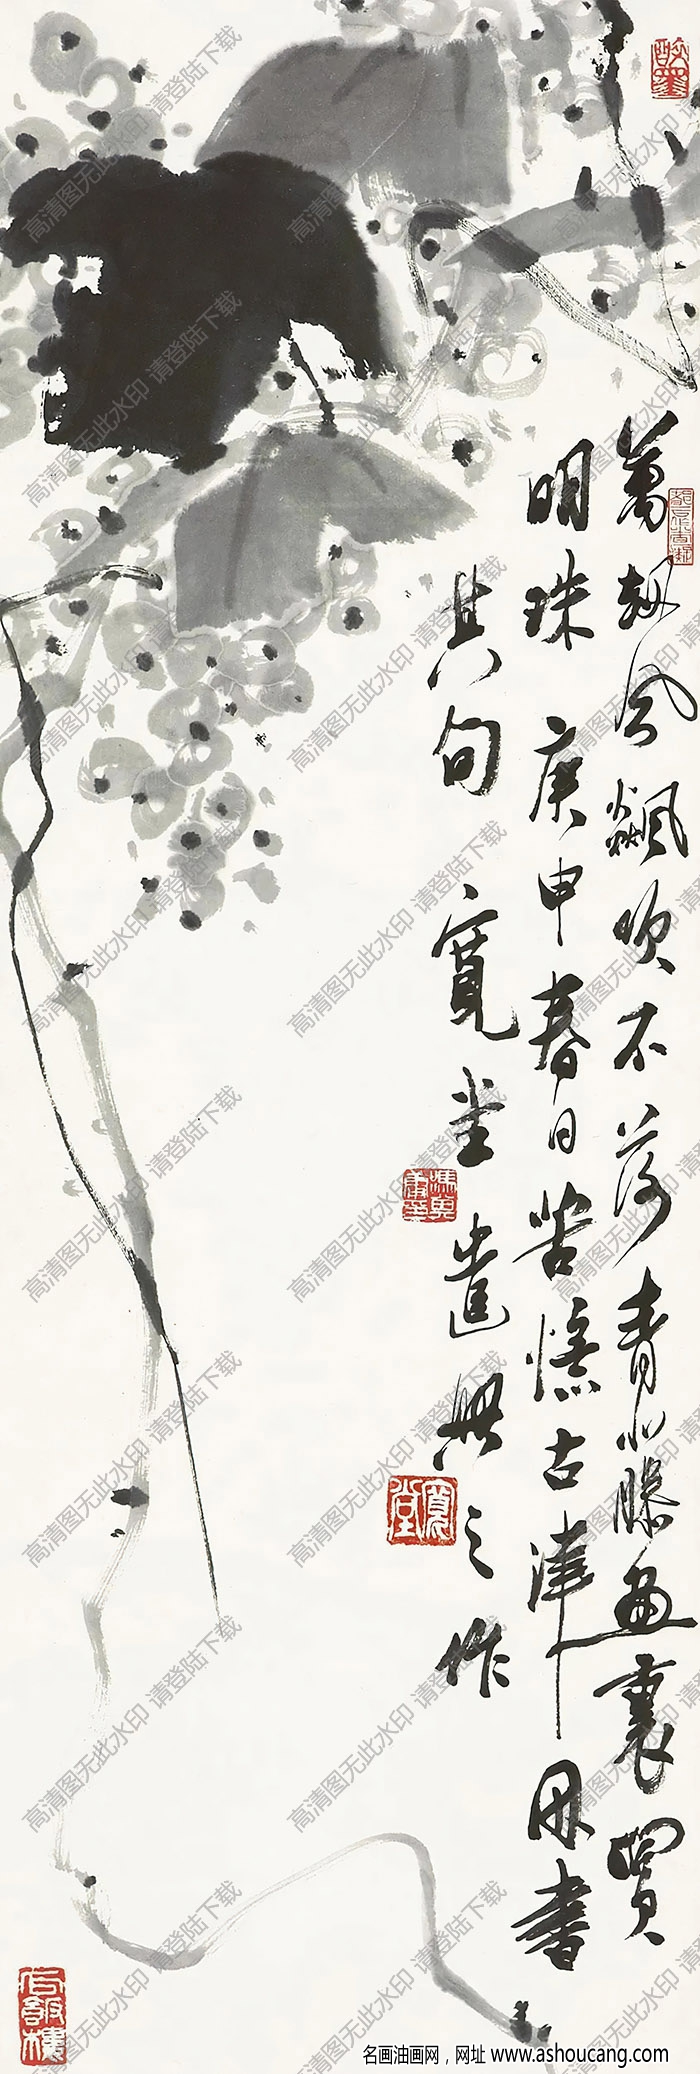 萬劫風飆吹不落青藤畫裏買
明珠 庚申春日苦憶古津因書
其句 寬堂遣興之作
寬堂
高清图无此水印 请登陆下载
名画油画网，网址 www.ashoucang.com